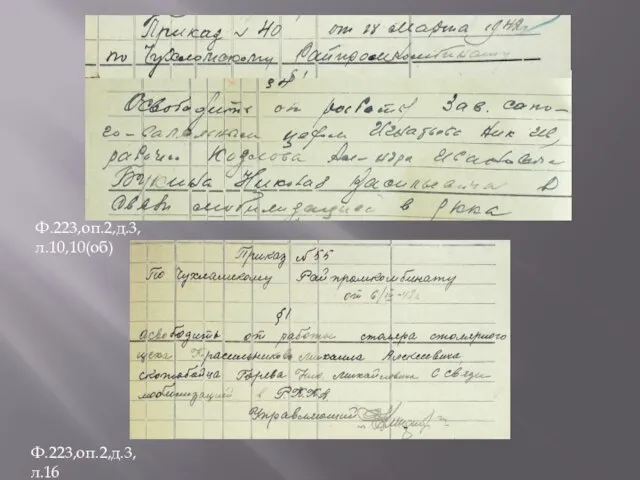 Приказ № 40 от 28 марта 1942г
по Чухломскому Райпромкомбинату
§ 1
Освободить от работы Зав. сапо-
го-валяльным цехом Игнатьева Ник
рабочих Козлова Ал-ндра Исаковича
Букина Николая Васильевича в
связи мобилизацией в ркка
Ф.223,оп.2,д.3,
л.10,10(об)
Приказ № 55
По Чухламскому Райпромкомбинату
от 6/IV-42г
§1
асвободить от работы столяра столярного
цеха Красильникова Михаила Алексеевича
скотобойца Горева Ник. Михайловича С связи
мобилизацией в Р.К.К.А
Управляющий
Ф.223,оп.2,д.3,
л.16